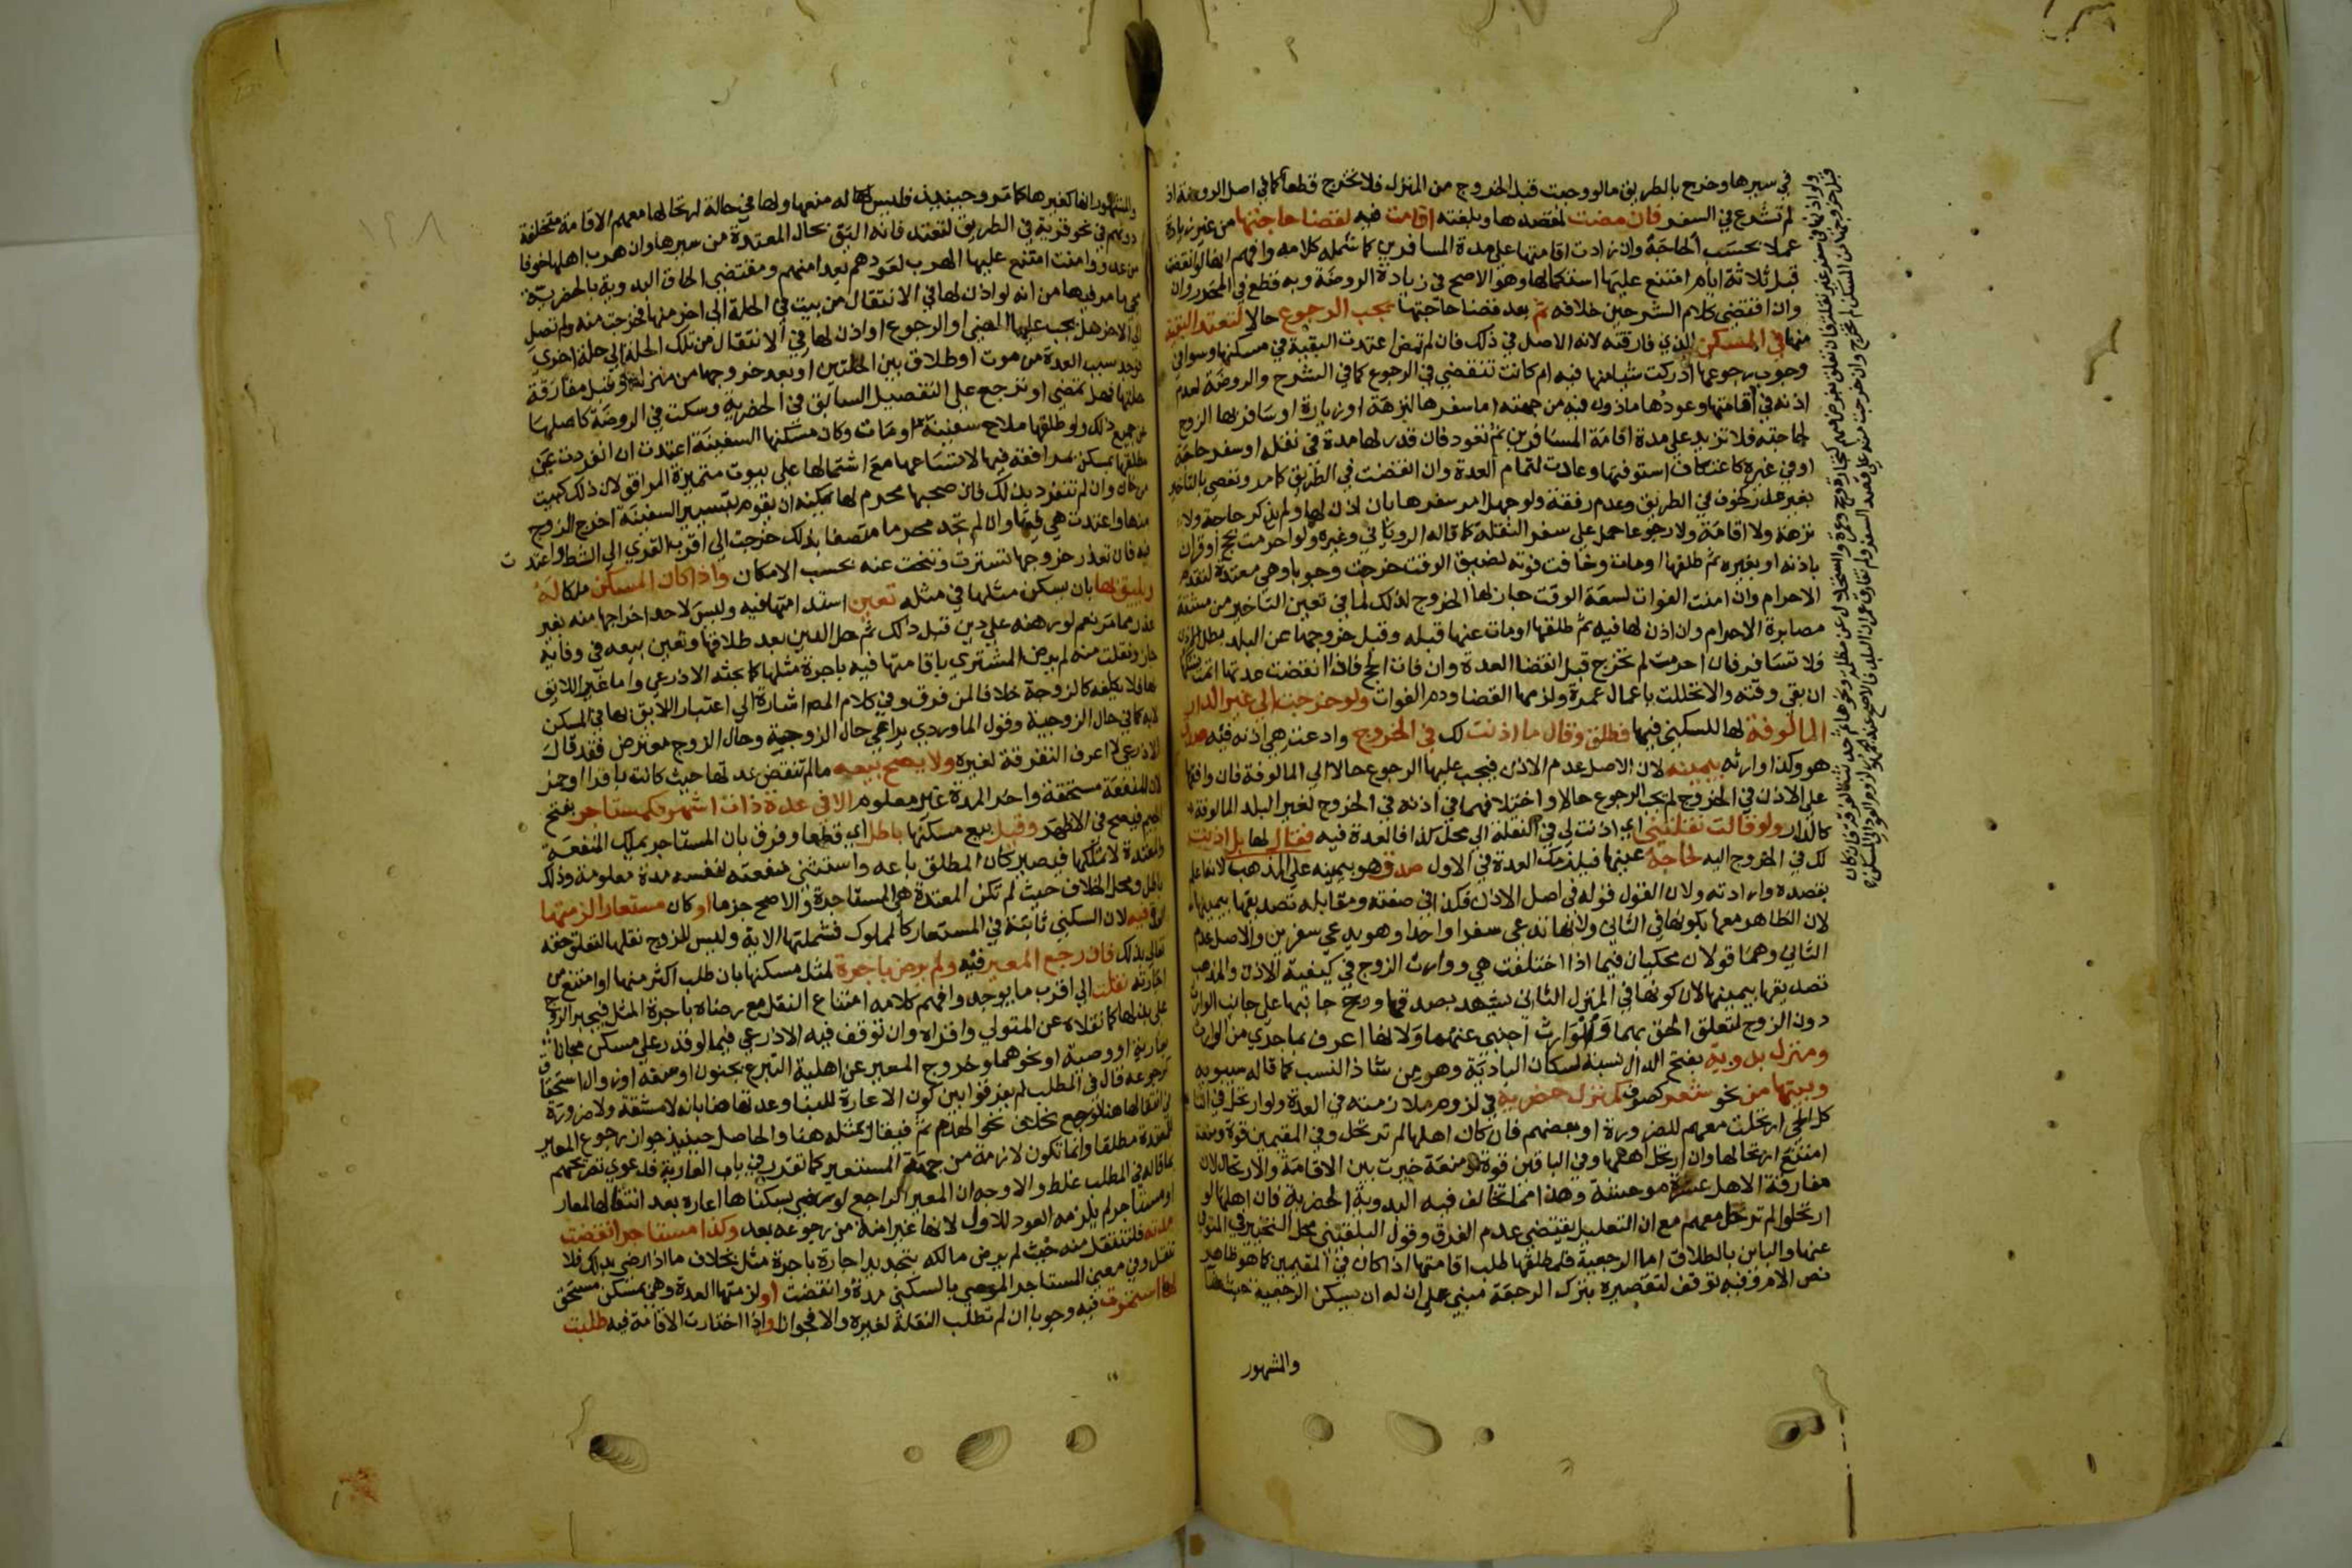 في سيرها وخرج بالطريق ما لو وجبت قبل الخروج من المنزل فلا تخرج قطعا كما في اصل الروضة اذ
لم تشرع في السفر فان مضت لمقصدها وبلغته اقامت فيه لقضا حاجتها من غير زيادة
عملا بحسب الحاجة وان زادت اقامتها على مدة المسافرين كما شمله كلامه وافهم انها لو انقضت
قبل ثلاثة ايام امتنع عليها استكمالها وهو الاصح في زيادة الروضة وبه قطع في المحرر وان
وان اقتضى كلام الشرحين خلافه ثم بعد قضا حاجتها يجب الرجوع حالا لتعتد البقية
منها في المسكن الذي فارقته لانه الاصل في ذلك فان لم تمض اعتدت البقية في مسكنها وسوا في
وجوب رجوعها ادركت شيا منها فيه ام كانت تنقضي في الرجوع كما في الشرح والروضة لعدم
اذنه في اقامتها وعودها ماذون فيه من جهته اما سفرها لنزهة او زيارة او سافر بها الزوج
لحاجته فلا تزيد على مدة اقامة المسافرين ثم تعود فان قدر لها مدة في نقله او سفر حاجة
او في غيره كاعتكاف استوفتها وعادت لتمام العدة وان انقضت في الطريق كما مر وتعصي بالتاخير
بغير عذر كخوف في الطريق وعدم رفقة ولو جهل امر سفرها بان اذن لها ولم يذكر حاجة ولا
نزهة ولا اقامة ولا رجوعا حمل على سفر النقلة كما قاله الروياني وغيره ولو احرمت بحج او قران
باذنه او بغيره ثم طلقها او مات وخافت فوته لضيق الوقت خرجت وجوبا وهي معتدة لتقدم
الاحرام وان امنت الفوات لسعة الوقت جاز لها الخروج لذلك لما في تعين التاخير من مشقة
مصابرة الاحرام وان اذن لها فيه ثم طلقها او مات عنها قبله وقبل خروجها عن البلد بطل الاذن
فلا تسافر فان احرمت لم تخرج قبل انقضا العدة وان فات الحج فاذا انقضت عدتها اتمت نسكها
ان بقي وقته والا تحللت باعمال عمرة ولزمها القضا ودم الفوات ولو خرجت الى غير الدار
المالوفة لها للسكنى فيها فطلق وقال ما اذنت لك في الخروج وادعت هي اذنه فيه صدق
هو وكذا وارثه بيمينه لان الاصل عدم الاذن فيجب عليها الرجوع حالا الى المالوفة فان وافقها
على الاذن في الخروج لم يجب الرجوع حالا واختلافهما في اذنه في الخروج لغير البلد المالوفة
كالدار ولو قالت نقلتني اي اذنت لي في النقلة الى محل كذا فالعدة فيه فقال لها بل اذنت
لك في الخروج اليه لحاجة عينها فيلزمك العدة في الاول صدق هو بيمينه على المذهب لانه اعلم
بقصده وارادته ولان القول قوله في اصل الاذن فكذا في صفته ومقابله تصديقها بيمينها
لان الظاهر معها بكونها في الثاني ولانها تدعي سفرا واحدا وهو يدعي سفرين والاصل عدم
الثاني وهما قولان محكيان فيما اذا اختلفت هي ووارث الزوج في كيفية الاذن والمذهب
تصديقها بيمينها لان كونها في المنزل الثاني يشهد بصدقها ورجح جانبها على جانب الوارث
دون الزوج لتعلق الحق بهما والوارث اجنبي عنهما ولانها اعرف بما جرى من الوارث
ومنزل بدوية بفتح الدال نسبة لسكان البادية وهو من شاذ النسب كما قاله سيبويه
وبيتها من نحو شعر كصوف كمنزل حضرية في لزوم ملازمته في العدة ولو ارتحل في اثنا
كل الحي ارتحلت معهم للضرورة او بعضهم فان كان اهلها لم ترتحل وفي المقيمين قوة ومنعة
امتنع ارتحالها وان ارتحل اهلها وفي الباقين قوة ومنعة خيرت بين الاقامة والارتحال لان
مفارقة الاهل عسرة موحشة وهذا مما تخالف فيه البدوية الحضرية فان اهلها لو
ارتحلوا لم ترتحل معهم مع ان التعليل يقتضي عدم الفرق وقول البلقيني محل التخيير في المتوفى
عنها والباين بالطلاق اما الرجعية فلمطلقها طلب اقامتها اذا كان في المقيمين كما هو ظاهر
نص الام وفيه توقف لتقصيره بترك الرجعة مبني على ان له ان يسكن الرجعية حيث شا
والمشهور
والمشهور انها كغيرها كما مر وحينئذ فليس له منعها ولها في حالة ارتحالها معهم الاقامة متخلفة
دونهم في نحو قرية في الطريق لتعتد فانه اليق بحال المعتدة من سيرها وان هرب اهلها خوفا
من عدو وامنت امتنع عليها الهرب لعودهم بعد امنهم ومقتضى الحاق البدوية بالحضرية
مجي ما مر فيها من انه لو اذن لها في الانتقال من بيت في الحلة الى اخر منها فخرجت منه ولم تصل
الى الاخر هل يجب عليها المضي او الرجوع او اذن لها في الانتقال من تلك الحلة الى حلة اخرى
فوجد سبب العدة من موت او طلاق بين الحلتين او بعد خروجها من منزلها وقبل مفارقة
حلتها فهل تمضي او ترجع على التفصيل السابق في الحضرية وسكت في الروضة كاصلها
عن جميع ذلك ولو طلقها ملاح سفينة او مات وكان مسكنها السفينة اعتدت ان انفردت عن
مطلقها بمسكن بمرافقه فيها لاتساعها مع اشتمالها على بيوت متميزة المرافق لان ذلك كبيت
من خان وان لم تنفرد بذلك فان صحبها محرم لها يمكنه ان يقوم بتسيير السفينة اخرج الزوج
منها واعتدت هي فيها وان لم تجد محرما متصفا بذلك خرجت الى اقرب القرى الى الشط واعتدت
فيه فان تعذر خروجها تسترت وتنحت عنه بحسب الامكان واذا كان المسكن ملكا له
ويليق بها بان يسكن مثلها في مثله تعين استدامتها فيه وليس لاحد اخراجها منه بغير
عذر مما مر نعم لو رهنه على دين قبل ذلك ثم حل الدين بعد طلاقها وتعين بيعه في وفايه
جاز ونقلت منه لم يرض المشتري باقامتها فيه باجرة مثلها كما بحثه الاذرعي واما غير اللايق
بها فلا يكلفه كالزوجة خلافا لمن فرق وفي كلام المص اشارة الى اعتبار اللايق بها في المسكن
لا به كما في حال الزوجية وقول الماوردي يراعي حال الزوجية وحال الزوج معترض فقد قال
الاذرعي لا اعرف التفرقة لغيره ولا يصح بيعه ما لم تنقض عدتها حيث كانت باقرا او حمل
لان المنفعة مستحقة واخر المدة غير معلوم الا في عدة ذات اشهر فكمستاجر بفتح
الجيم فيصح في الاظهر وقيل بيع مسكنها باطل اي قطعا وفرق بان المستاجر يملك المنفعة
والمعتدة لا تملكها فيصير كان المطلق باعه واستثنى منفعته لنفسه مدة معلومة وذلك
باطل ومحل الخلاف حيث لم تكن المعتدة هي المستاجرة والا صح جزما او كان مستعارا لزمتها
فيه لان السكنى ثابتة في المستعار كالمملوك فشملتها الاية وليس للزوج نقلها لتعلق حقه
تعالى بذلك فان رجع المعير فيه ولم يرض باجرة لمثل مسكنها بان طلب اكثر منها او امتنع من
اجارته نقلت الى اقرب ما يوجد وافهم كلامه امتناع النقل مع رضاه باجرة المثل فيجبر الزوج
على بذلها كما نقلاه عن المتولي واقراه وان توقف فيه الاذرعي فيما لو قدر على مسكن مجانا
بعارية او وصية او نحوهما وخروج المعير عن اهلية التبرع بجنون او سفه او زوال استحقاق
كرجوعه قال في المطلب لم يفرقوا بين كون الاعارة للبنا وعدمها هنا بانه لا مشقة ولا ضرورة
في انتقالها هنا لو رجع بخلاف نحو الهدم ثم فيقال بمثله هنا والحاصل حينئذ جواز رجوع المعير
للمعتدة مطلقا وانما تكون لازمة من جهة المستعير كما تقرر في باب العارية فدعوى تصريحهم
بما قاله في المطلب غلط والاوجه ان المعير الراجع لو رضي بسكناها اعارة بعد انتقالها لمعار
او مستاجر لم يلزمه العود للاول لانها غير امنة من رجوعه بعد وكذا مستاجر انقضت
مدته فلتنتقل منه حيث لم يرض مالكه بتجديد اجارة باجرة مثل بخلاف ما اذا رضي بذلك فلا
تنقل وفي معنى المستاجر الموصى بالسكنى مدة وانقضت او لزمتها العدة وهي بمسكن مستحق
لها استمرت فيه وجوبا ان لم تطلب النقلة لغيره والا فجوازا واذا اختارت الاقامة فيه طلبت